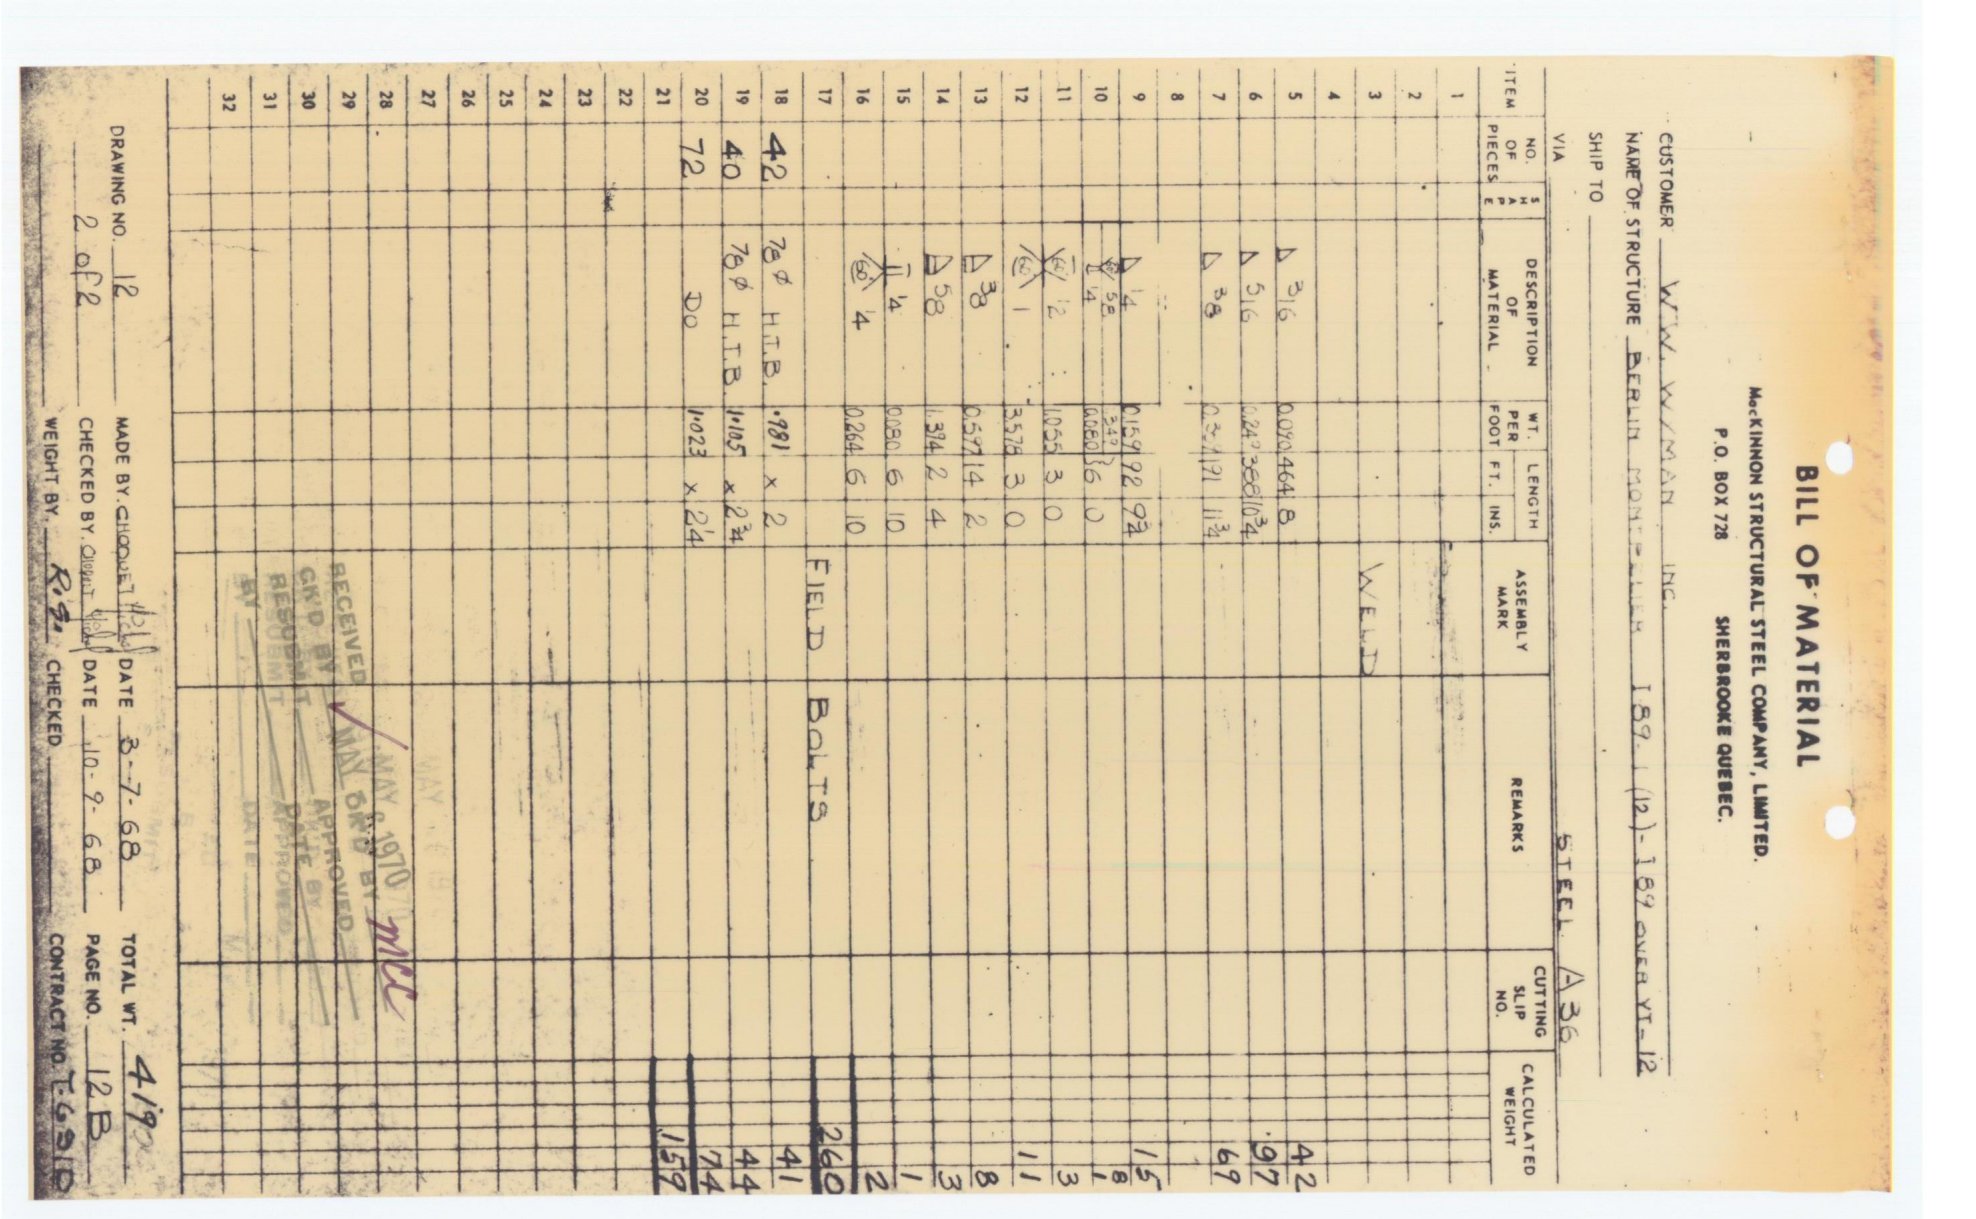 BILL OF MATERIAL
MacKINNON STRUCTURAL STEEL COMPANY, LIMITED.
P.O. BOX 728 SHERBROOKE QUEBEC.
CUSTOMER W.W. WYMAN INC.
NAME OF STRUCTURE BERLIN MONTPELIER I 89-1(12)-I 89 OVER VT-12
SHIP TO
VIA STEEL A36
ITEM NO. OF PIECES SHAPE DESCRIPTION OF MATERIAL WT. PER FOOT LENGTH FT. INS. ASSEMBLY MARK REMARKS CUTTING SLIP NO. CALCULATED WEIGHT
1
2
3 WELD
4
5 3/16 0.090 464 8 42
6 5/16 0.249 388 10 3/4 97
7 3/8 191 11 3/4 69
8
9 1/4 0.159 92 9 3/4 15
10 60 5/8 1.347 8
1/4 0.080 6 0 1
11 60 1/2 1.055 3 0 3
12 60 1 3.578 3 0 11
13 3/8 0.597 14 2 8
14 5/8 1.394 2 4 3
15 1/4 0.080 6 10 1
16 60 1/4 0.264 6 10 2
17 FIELD BOLTS 260
18 42 7/8 φ H.T.B. .981 x 2 41
19 40 7/8 φ H.T.B. 1.105 x 2 3/4 44
20 72 DO 1.023 x 2 1/4 74
21 159
22
23
24
25
26
27
28
29
30
31
32
MAY 6 1970
RECEIVED MAY
CK'D BY APPROVED
RESUBMIT DATE BY
BY DATE
MCC
DRAWING NO. 12 MADE BY. CHOQUET DATE 3-7-68 TOTAL WT. 419
2 of 2 CHECKED BY. DATE 10-9-68 PAGE NO. 12B
WEIGHT BY. CHECKED CONTRACT NO.